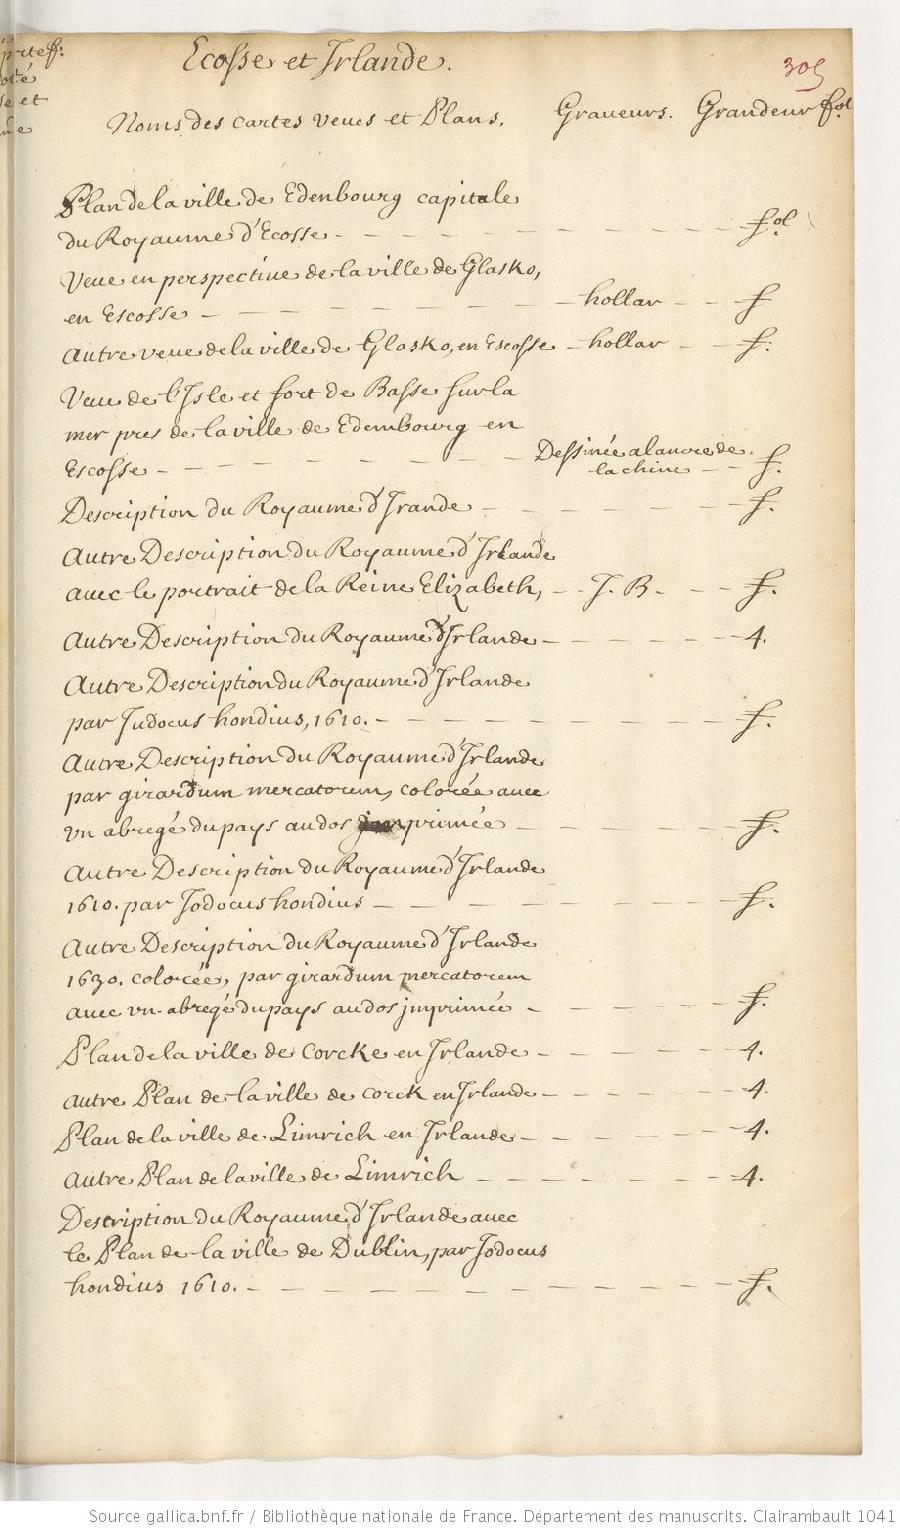 Ecosse et Irlande.
305
Noms des cartes veues et Plans. Graveurs. Grandeur fol.
Plan de la ville de Edenbourg capitale
du Royaume d'Ecosse - - - - - - - - - fol.
Veue en perspective de la ville de Glasko,
en Escosse - - - - - - - hollar - - f
Autre veue de la ville de Glasko, en Escosse - hollar - - f.
Veue de l'Isle et fort de Basse sur la
mer pres de la ville de Edembourg en
Escosse - - - - - - - - Dessinée a lancre de
la chine - - f.
Description du Royaume d'Irande - - - - - - - f.
Autre Description du Royaume d'Irlande
avec le portrait de la Reine Elizabeth, - - J. B - - - f.
Autre Description du Royaume d'Irlande - - - - - - 4.
Autre Description du Royaume d'Irlande
par Judocus hondius, 1610. - - - - - - - - - f.
Autre Description du Royaume d'Irlande
par girardum mercatorem, colorée avec
vn abregé du pays au dos imprimée - - - - - - f.
Autre Description du Royaume d'Irlande
1610. par Jodocus hondius - - - - - - - - - f.
Autre Description du Royaume d'Irlande
1630. colorée, par girardum mercatorem
avec vn abregé du pays au dos jmprimée - - - - - - f.
Plan de la ville de Corcke en Irlande - - - - - - 4.
Autre Plan de la ville de corck en Irlande - - - - - - 4.
Plan de la ville de Limrich en Irlande - - - - - - 4.
Autre Plan de la ville de Limrich - - - - - - - - 4.
Description du Royaume d'Irlande avec
le Plan de la ville de Dublin, par Jodocus
hondius 1610. - - - - - - - - - - - - f.
Source gallica.bnf.fr / Bibliothèque nationale de France. Département des manuscrits. Clairambault 1041